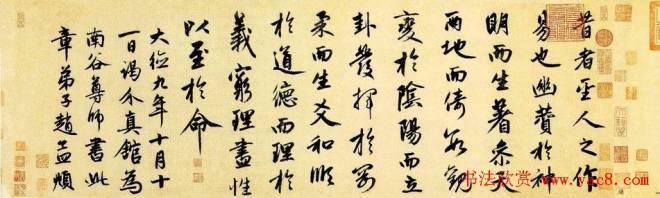 昔者聖人之作
易也幽贊於神
明而生蓍參天
兩地而倚數觀
變於陰陽而立
卦發揮於剛
柔而生爻和順
於道德而理於
義窮理盡性
以至於命
大德九年十月十
一日謁介真館為
南谷尊師書此
章弟子趙孟頫
书法欣赏 www.yac8.com